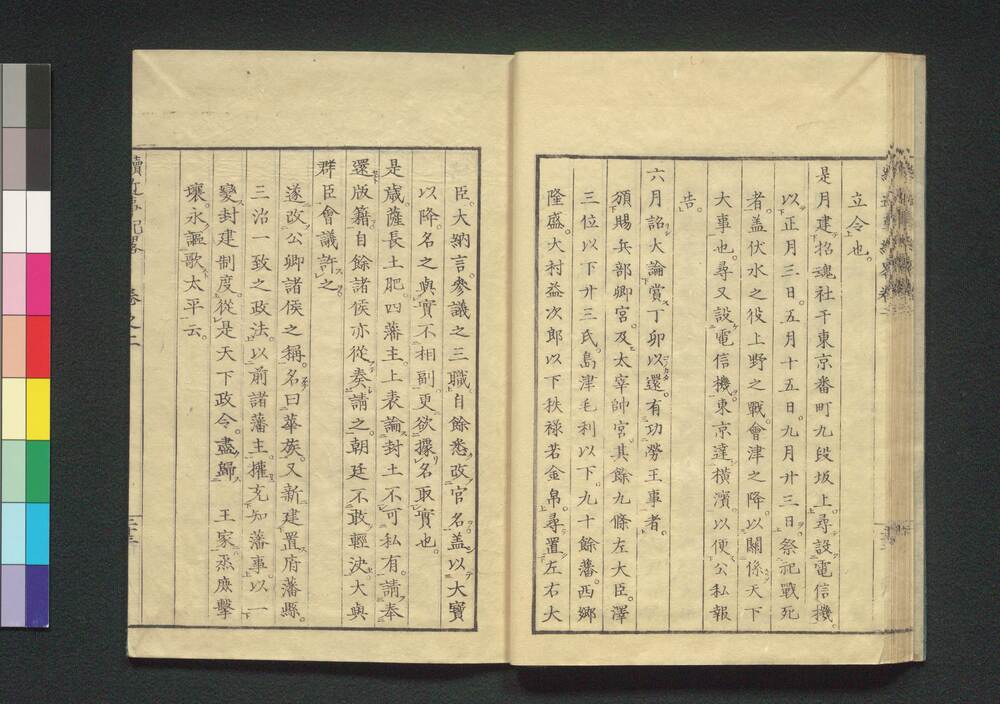 立令也。
是月建招魂社于東京番町九段坂上。尋設電信機。
以正月三日。五月十五日。九月廿三日祭祀戰死
者。盖伏水之役上野之戰。會津之降。以關係天下
大事也。尋又設電信機。東京達橫濱。以便公私報
告。
六月詔大論賞丁卯以還。有功勞王事者。
頒賜兵部卿宮。及太宰帥宮。其餘九條左大臣。澤
三位以下廿三氏。島津毛利以下。九十餘藩。西鄉
隆盛。大村益次郎以下秩祿若金帛。尋置左右大
臣大納言。參議之三職。自餘悉改官名。盖以大寶
以降。名之與實不相副。更欲據名取實也。
是歲。薩長土肥四藩主。上表論封土不可私有。請奉
還版籍。自餘諸侯亦從奏請之。朝廷不敢輕決。大與
群臣會議許之。
遂改公卿諸侯之稱。名曰華族。又新建置府藩縣。
三治一致之政法。以前諸藩主。擢充知藩事。以一
變封建制度。從是天下政令。盡歸 王家。烝庶擊
壤。永謳歌太平云。
續近事紀畧 卷之二